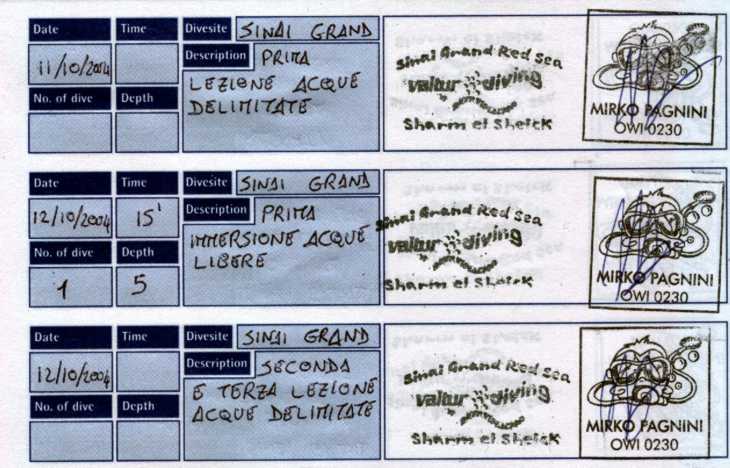 Date Time Divesite SINAI GRAND
11/10/2004 Description PRIMA
LEZIONE ACQUE
No. of dive Depth DELIMITATE
Sinai Grand Red Sea
valtur diving
Sharm el Sheick
MIRKO PAGNINI
OWI 0230
Date Time Divesite SINAI GRAND
12/10/2004 15' Description PRIMA
IMMERSIONE ACQUE
No. of dive Depth LIBERE
1 5
Sinai Grand Red Sea
valtur diving
Sharm el Sheick
MIRKO PAGNINI
OWI 0230
Date Time Divesite SINAI GRAND
12/10/2004 Description SECONDA
E TERZA LEZIONE
No. of dive Depth ACQUE DELIMITATE
Sinai Grand Red Sea
valtur diving
Sharm el Sheick
MIRKO PAGNINI
OWI 0230